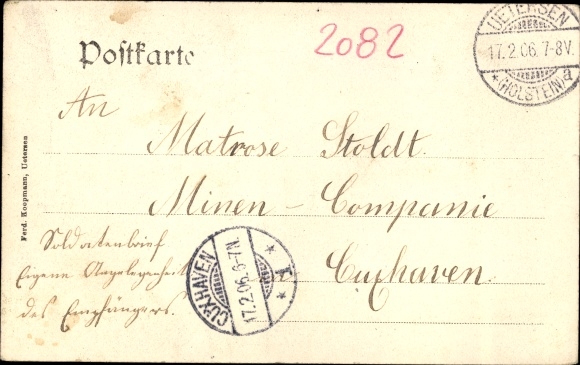 Postkarte
2082
UETERSEN
17.2.06. 7-8V.
* (HOLSTEIN) a
An
Matrose Stoldt.
Minen - Companie
Cuxhaven.
Soldatenbrief
Eigene Angelegenheit
des Empfängers.
CUXHAVEN
17.2.06. 6-7N.
* 1 *
Ferd. Koopmann, Uetersen